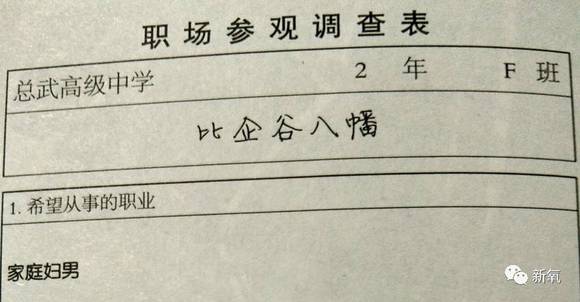 职场参观调查表
总武高级中学 2 年 F 班
比企谷八幡
1. 希望从事的职业
家庭妇男
新氧